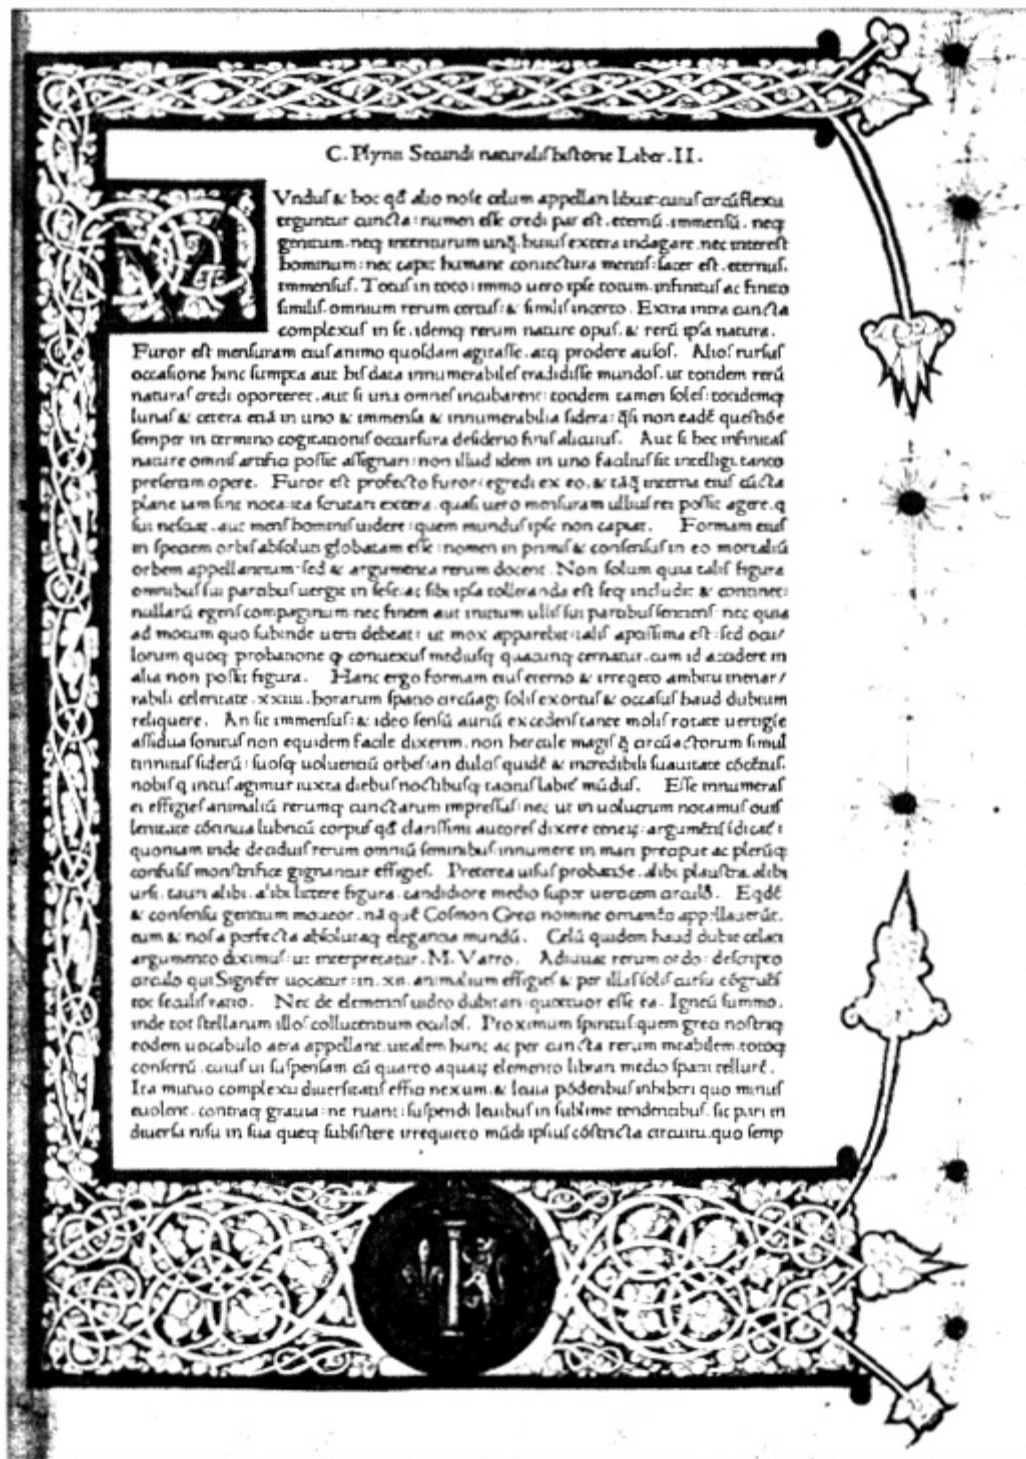 C. Plynii Secundi naturalis historie Liber . II .
MVndus & hoc qđ alio noīe celum appellari libuit: cuius circūflexu
teguntur cuncta: numen esse credi par est . eternū . immensū . neq;
genitum . neq; interiturum unq̄ . huius extera indagare . nec interest
hominum: nec capit humane coniectura mentis: sacer est . eternus .
immensus . Totus in toto: immo uero ipse totum . infinitus ac finito
similis . omnium rerum certus: & similis incerto . Extra intra cuncta
complexus in se . idemq; rerum nature opus . & rerū ipsa natura .
Furor est mensuram eius animo quosdam agitasse . atq; prodere ausos . Alios rursus
occasione hinc sumpta aut his data innumerabiles tradidisse mundos . ut totidem rerū
naturas credi oporteret . aut si una omnes incubarent: totidem tamen soles: totidemq;
lunas & cetera etiā in uno & immensa & innumerabilia sidera: q̄si non eadē questiōe
semper in termino cogitationis occursura desiderio finis alicuius . Aut si hec infinitas
nature omnis artifici possit assignari: non illud idem in uno facilius sit intelligi . tanto
presertim opere . Furor est profecto furor: egredi ex eo . & tāq̄ interna eius cūcta
plane iam sint nota: ita scrutari extera . quasi uero mensuram ullius rei possit agere . q
sui nesciat . aut mens hominis uidere: quem mundus ipse non capiat . Formam eius
in speciem orbis absoluti globatam esse: nomen in primis & consensus in eo mortaliū
orbem appellantium: sed & argumenta rerum docent . Non solum quia talis figura
omnibus sui partibus uergit in sese: ac sibi ipsa tolleranda est seq; includit & continet:
nullarū egens compaginum nec finem aut initium ullis sui partibus sentiens: nec quia
ad motum quo subinde uerti debeat: ut mox apparebit: talis aptissima est: sed ocu/
lorum quoq; probatione q conuexus mediusq; quacunq; cernatur . cum id accidere in
alia non possit figura . Hanc ergo formam eius eterno & irrequieto ambitu inenar/
rabili celeritate . xxiiii . horarum spatio circūagi solis exortus & occasus haud dubium
reliquere . An sit immensus: & ideo sensū auriū excedens tante molis rotate uertigīe
assidua sonitus non equidem facile dixerim . non hercule magis q̄ circūactorum simul
tinnitus siderū: suosq; uoluentiū orbes: an dulcis quidē & incredibili suauitate cōcētus .
nobis q intus agimur iuxta diebus noctibusq; tacitus labit mūdus . Esse innumeras
ei effigies animaliū rerumq; cunctarum impressas: nec ut in uolucrum notamus ouis
leuitate cōtinua lubricū corpus qđ clarissimi autores dixere tenerꝝ: argumētis īdicat:
quoniam inde deciduis rerum omniū seminibus innumere in mari precipue ac plerūq;
confusis monstrifice gignantur effigies . Preterea uisus probatiōe . alibi plaustra . alibi
ursi . tauri alibi . alibi littere figura . candidiore medio super uerticem circulo . Eqdē
& consensu gentium moueor . nā quē Cosmon Greci nomine ornamēti appellauerūt .
eum & nos a perfecta absolutaq; elegantia mundū . Celū quidem haud dubie celati
argumento diximus: ut interpretatur . M . Varro . Adiuuat rerum ordo: descripto
circulo qui Signifer uocatur: in . xii . animalium effigies & per illas solis cursu cōgruēs
tot seculis ratio . Nec de elementis uideo dubitari: quattuor esse ea . Igneū summo .
inde tot stellarum illos collucentium oculos . Proximum spiritus quem greci nostriq;
eodem uocabulo aera appellant . uitalem hunc ac per cuncta rerum meabilem . totoq;
consertū . cuius ui suspensam cū quarto aquarꝝ elemento librari medio spatii tellurē .
Ita mutuo complexu diuersitatis effici nexum . & leuia pōderibus inhiberi quo minus
euolent . contraq; grauia: ne ruant: suspendi leuibus in sublime tendentibus . sic pari in
diuersa nisu in sua queq; subsistere irrequieto mūdi ipsius cōstricta circuitu . quo semp